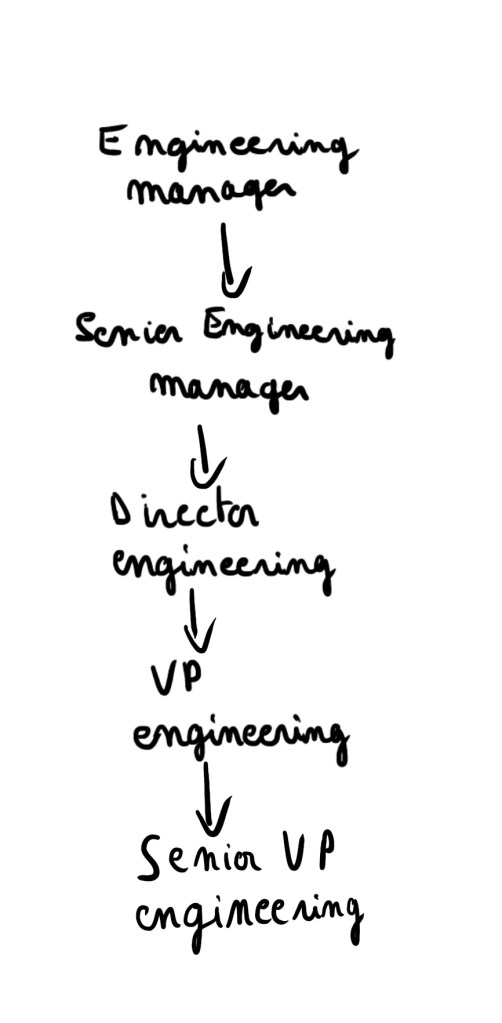 Engineering
manager
Senior Engineering
manager
Director
engineering
VP
engineering
Senior VP
engineering